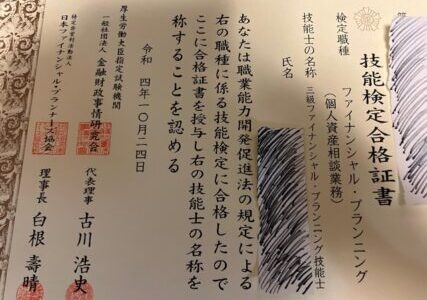 技能検定合格証書
検定職種
ファイナンシャル・プランニング
（個人資産相談業務）
技能士の名称
三級ファイナンシャル・プランニング技能士
氏名
あなたは職業能力開発促進法の規定による
右の職種に係る技能検定に合格したので
ここに合格証書を授与し右の技能士の名称を
称することを認める
令和四年一〇月二四日
厚生労働大臣指定試験機関
一般社団法人 金融財政事情研究会
代表理事 古川浩史
特定非営利活動法人
日本ファイナンシャル・プランナーズ協会
理事長 白根壽晴